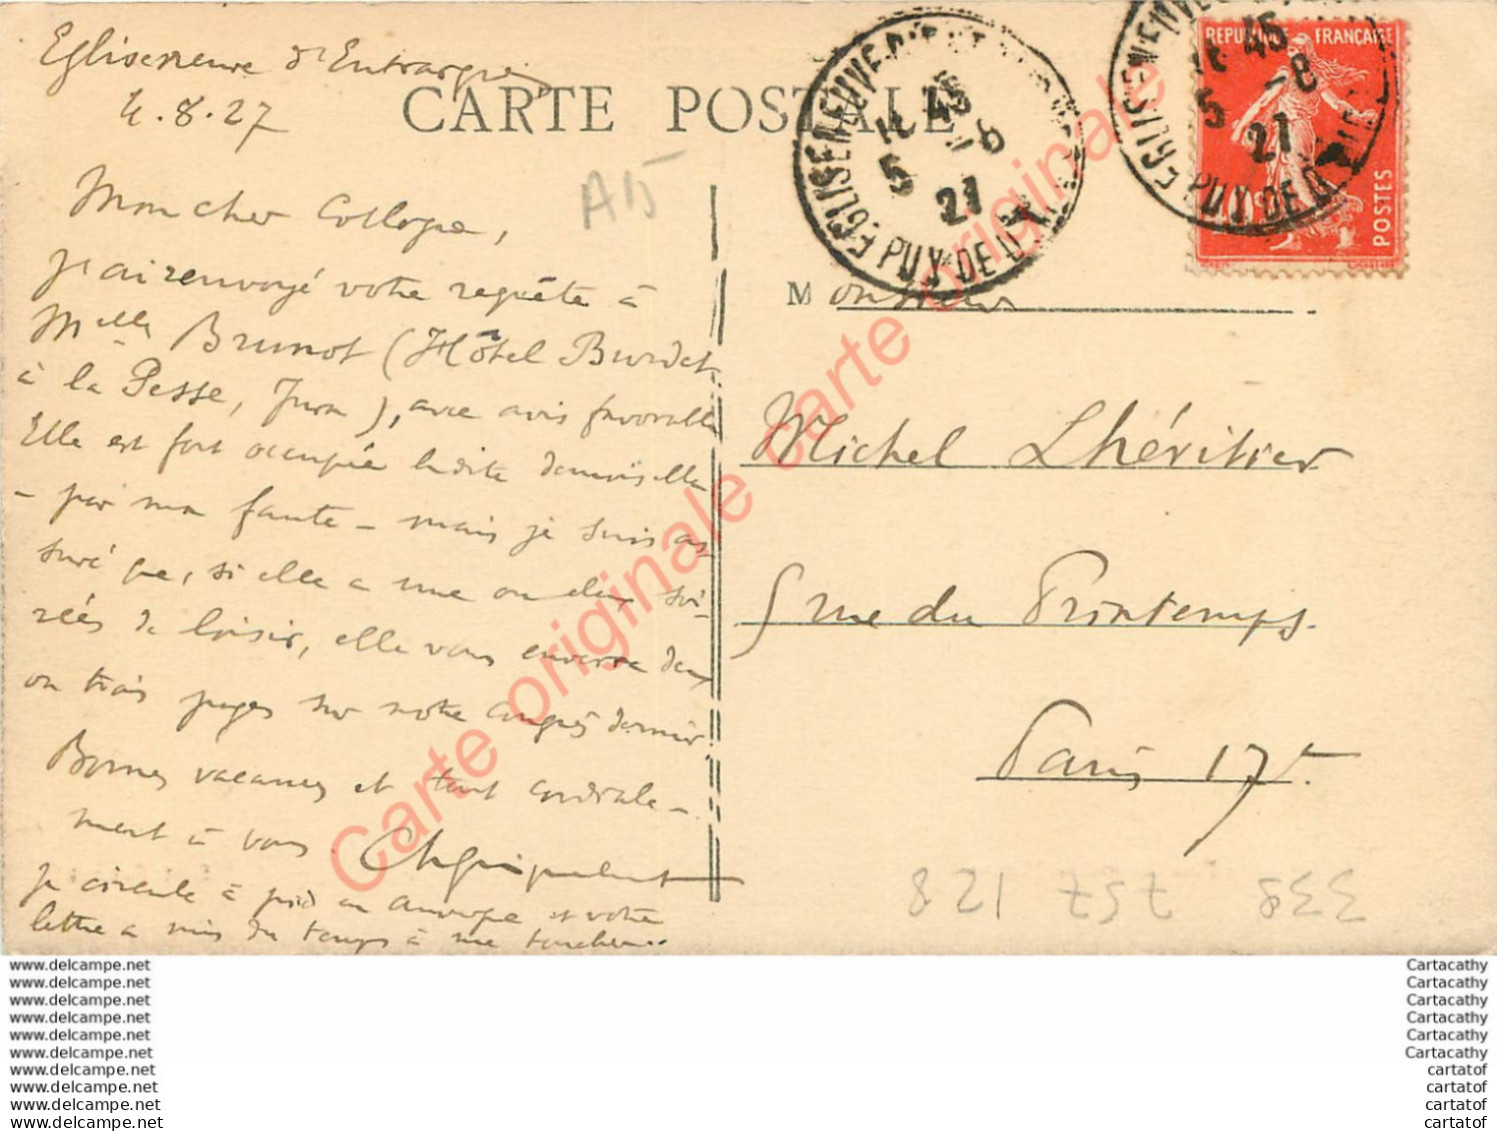 Egliseneuve d'Entraigues
4.8.27
CARTE POSTALE
A15
Mon cher Collègue,
j'ai renvoyé votre requête à
Melle Brunot (Hôtel Burdet
à la Pesse, Jura), avec avis favorable
Elle est fort occupée ladite demoiselle
- par ma faute - mais je suis as-
suré que, si elle a une ou deux soi-
rées de loisir, elle vous enverra deux
ou trois pages sur notre Congrès dernier.
Bonnes vacances et tout cordiale-
ment à vous
je circule à pied en Auvergne et votre
lettre a mis du temps à me toucher.
EGLISENEUVE D'ENTRAIGUES
11 45
5 -8
27
PUY-DE-DOME
EGLISENEUVE D'EN
11 45
5 -8
27
PUY-DE-DOME
REPUBLIQUE FRANÇAISE
POSTES
Monsieur
Michel Lhéritier
5 rue du Printemps.
Paris 17e.
821 757 338
Carte originale carte originale
www.delcampe.net
www.delcampe.net
www.delcampe.net
www.delcampe.net
www.delcampe.net
www.delcampe.net
www.delcampe.net
www.delcampe.net
www.delcampe.net
www.delcampe.net
Cartacathy
Cartacathy
Cartacathy
Cartacathy
Cartacathy
Cartacathy
cartatof
cartatof
cartatof
cartatof